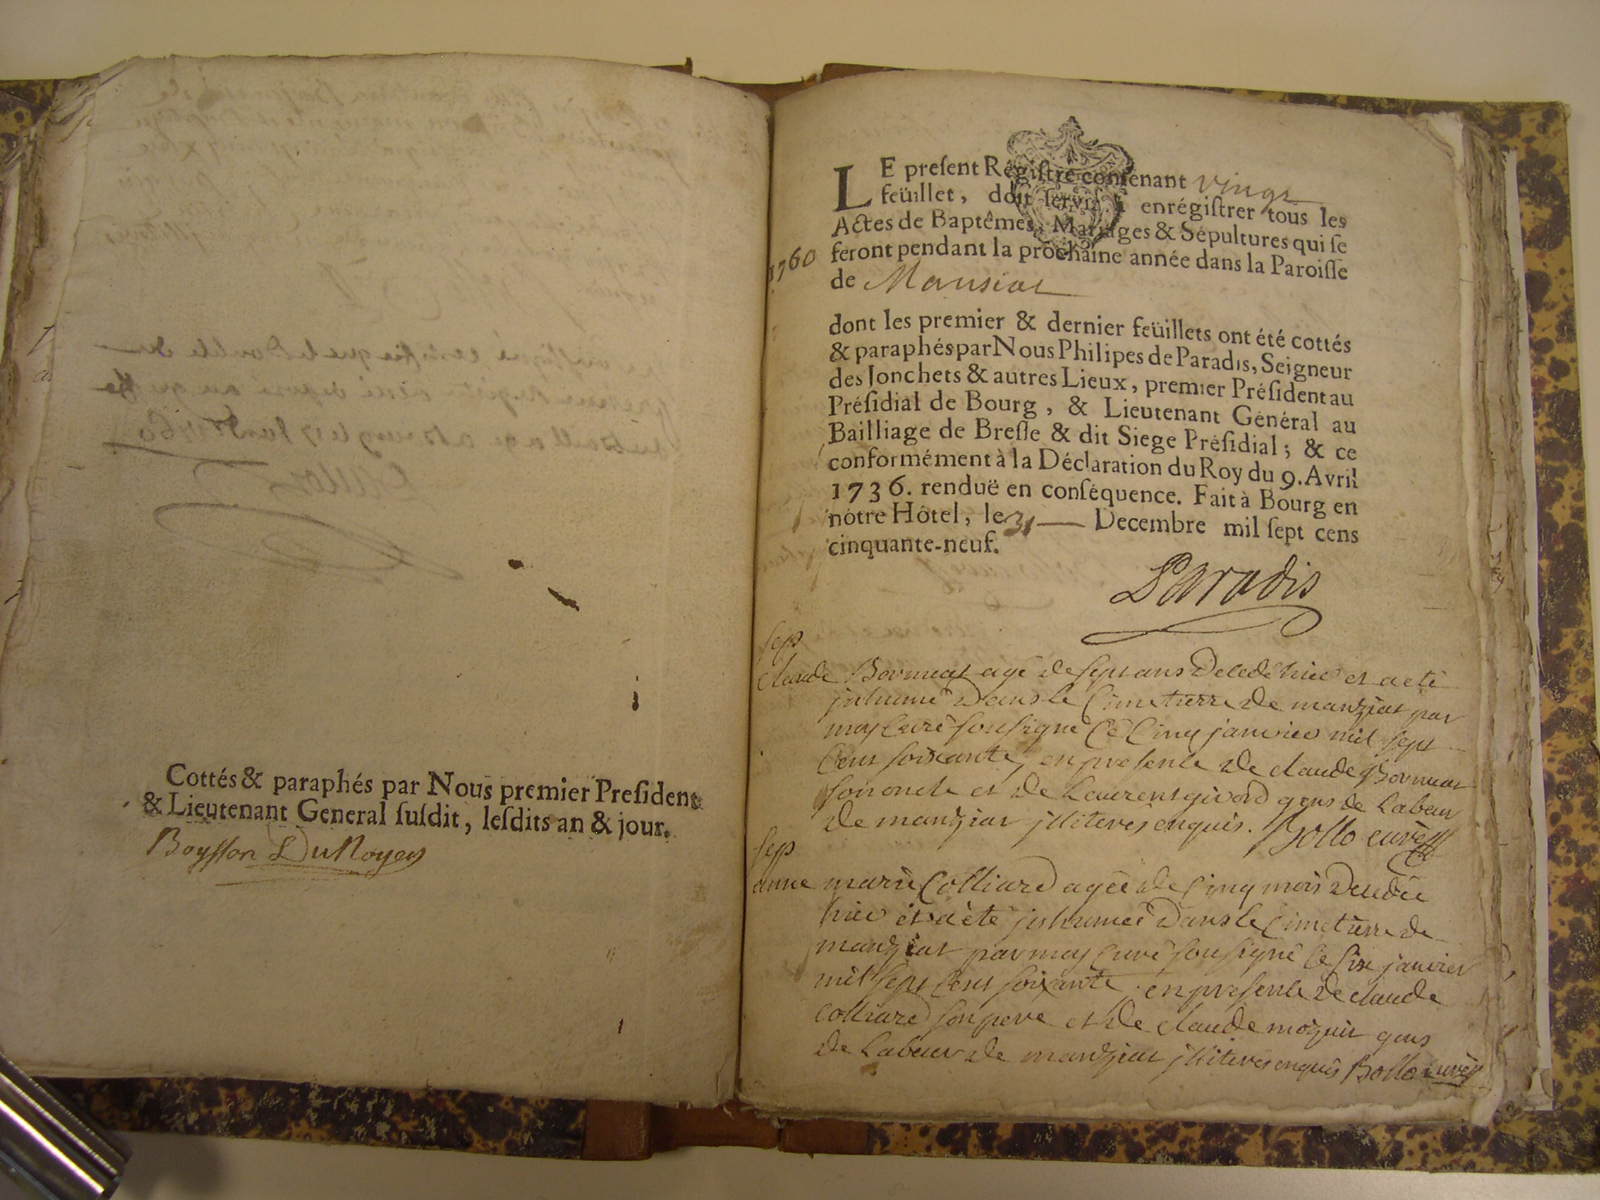 Cottés & paraphés par Nous premier Preſident
& Lieutenant General ſuſdit, leſdits an & jour.
Boysson DuNoyer
LE preſent Régiſtre contenant vingt
feüillet, doit ſervir à enrégiſtrer tous les
Actes de Baptêmes, Mariages & Sépultures qui ſe
1760
feront pendant la prochaine année dans la Paroiſſe
de Mansiat
dont les premier & dernier feüillets ont été cottés
& paraphés par Nous Philipes de Paradis, Seigneur
des Jonchets & autres Lieux, premier Préſident au
Préſidial de Bourg, & Lieutenant Général au
Bailliage de Breſſe & dit Siege Préſidial; & ce
conformément à la Déclaration du Roy du 9. Avril
1736. renduë en conſéquence. Fait à Bourg en
nótre Hôtel, le 31 Decembre mil ſept cens
cinquante-neuf.
Paradis
sep
claude Bormeat agé de sept ans decedé hier et a eté
inhumé dans le Cimetierre de manziat par
moy curé soussigné ce Cinq janvier mil sept
Cent soixante en presence de claude Bormeat
son oncle et de Laurent givord gens de Labeur
de manziat illiteres enquis. Bollo curé
sep
anne marie Colliard agée de Cinq mois decedée
hier et a eté inhumée dans le Cimetierre de
manziat par moy curé soussigné ce six janvier
mil sept Cent soixante en presence de claude
Colliard son pere et de claude moquit gens
de Labeur de manziat illiteres enquis Bollo curé